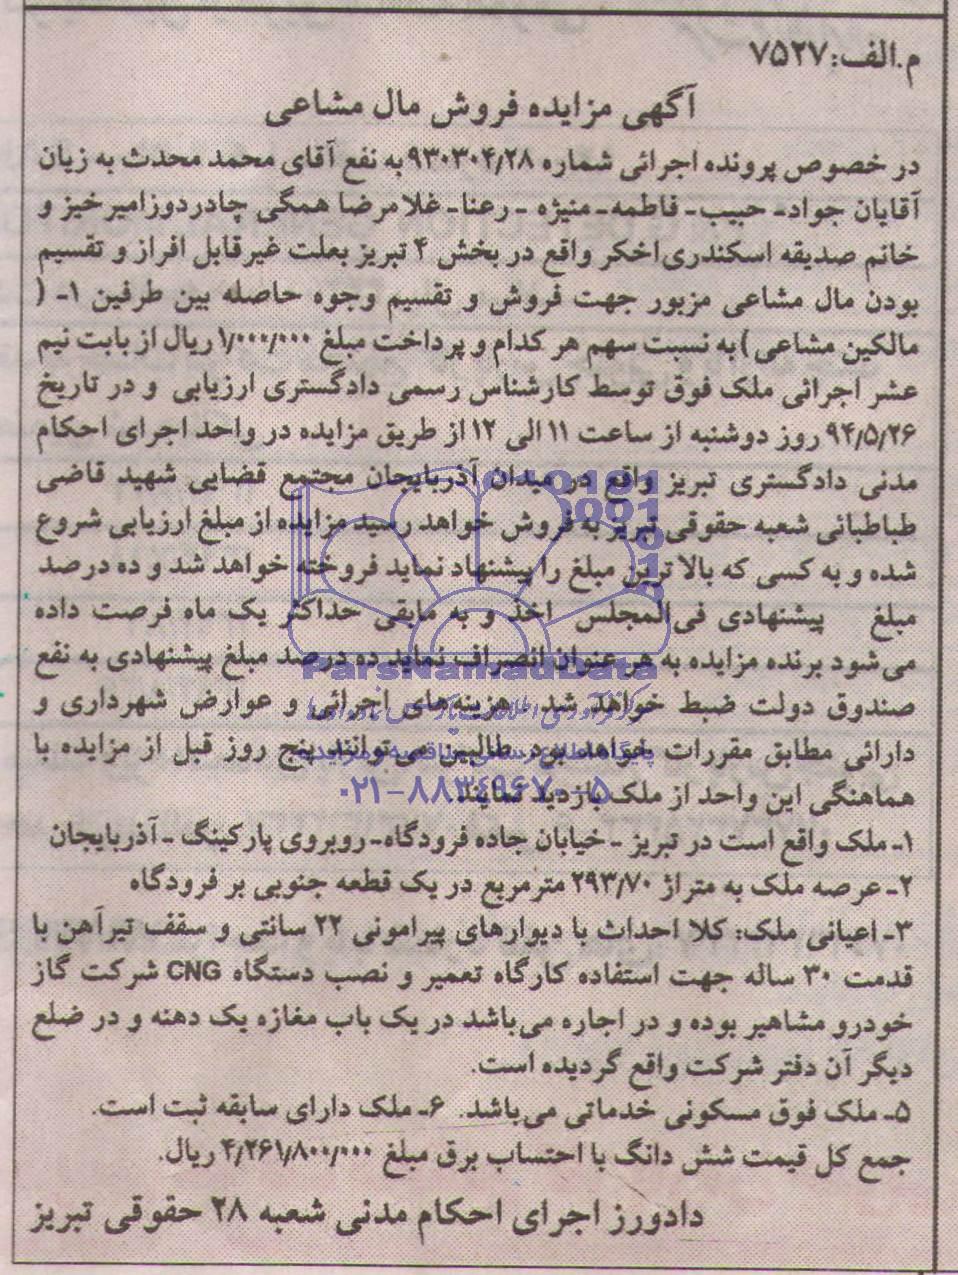 م.الف: ۷۵۲۷
آگهی مزایده فروش مال مشاعی
در خصوص پرونده اجرائی شماره ۹۳۰۳۰۴/۲۸ به نفع آقای محمد محدث به زیان
آقایان جواد- حبیب- فاطمه- منیژه - رعنا- غلامرضا همگی چادردوزامیرخیز و
خانم صدیقه اسکندری‌اخکر واقع در بخش ۴ تبریز بعلت غیرقابل افراز و تقسیم
بودن مال مشاعی مزبور جهت فروش و تقسیم وجوه حاصله بین طرفین ۱- (
مالکین مشاعی ) به نسبت سهم هر کدام و پرداخت مبلغ ۱/۰۰۰/۰۰۰ ریال از بابت نیم
عشر اجرائی ملک فوق توسط کارشناس رسمی دادگستری ارزیابی و در تاریخ
۹۴/۵/۲۶ روز دوشنبه از ساعت ۱۱ الی ۱۲ از طریق مزایده در واحد اجرای احکام
مدنی دادگستری تبریز واقع در میدان آذربایجان مجتمع قضایی شهید قاضی
طباطبائی شعبه حقوقی تبریز به فروش خواهد رسید مزایده از مبلغ ارزیابی شروع
شده و به کسی که بالا ترین مبلغ را پیشنهاد نماید فروخته خواهد شد و ده درصد
مبلغ پیشنهادی فی‌المجلس اخذ و به مابقی حداکثر یک ماه فرصت داده
می‌شود برنده مزایده به هر عنوان انصراف نماید ده درصد مبلغ پیشنهادی به نفع
ParsNamadData
صندوق دولت ضبط خواهد شد. هزینه‌های اجرائی و عوارض شهرداری و
دارائی مطابق مقررات خواهد بود. طالبین می توانند پنج روز قبل از مزایده با
هماهنگی این واحد از ملک بازدید نمایند.
۰۲۱-۸۸۳۴۹۶۷۰-۵
۱- ملک واقع است در تبریز - خیابان جاده فرودگاه- روبروی پارکینگ - آذربایجان
۲- عرصه ملک به متراژ ۲۹۳/۷۰ مترمربع در یک قطعه جنوبی بر فرودگاه
۳- اعیانی ملک: کلا احداث با دیوارهای پیرامونی ۲۲ سانتی و سقف تیرآهن با
قدمت ۳۰ ساله جهت استفاده کارگاه تعمیر و نصب دستگاه CNG شرکت گاز
خودرو مشاهیر بوده و در اجاره می‌باشد در یک باب مغازه یک دهنه و در ضلع
دیگر آن دفتر شرکت واقع گردیده است.
۵- ملک فوق مسکونی خدماتی می‌باشد. ۶- ملک دارای سابقه ثبت است.
جمع کل قیمت شش دانگ با احتساب برق مبلغ ۴/۲۶۱/۸۰۰/۰۰۰ ریال.
دادورز اجرای احکام مدنی شعبه ۲۸ حقوقی تبریز